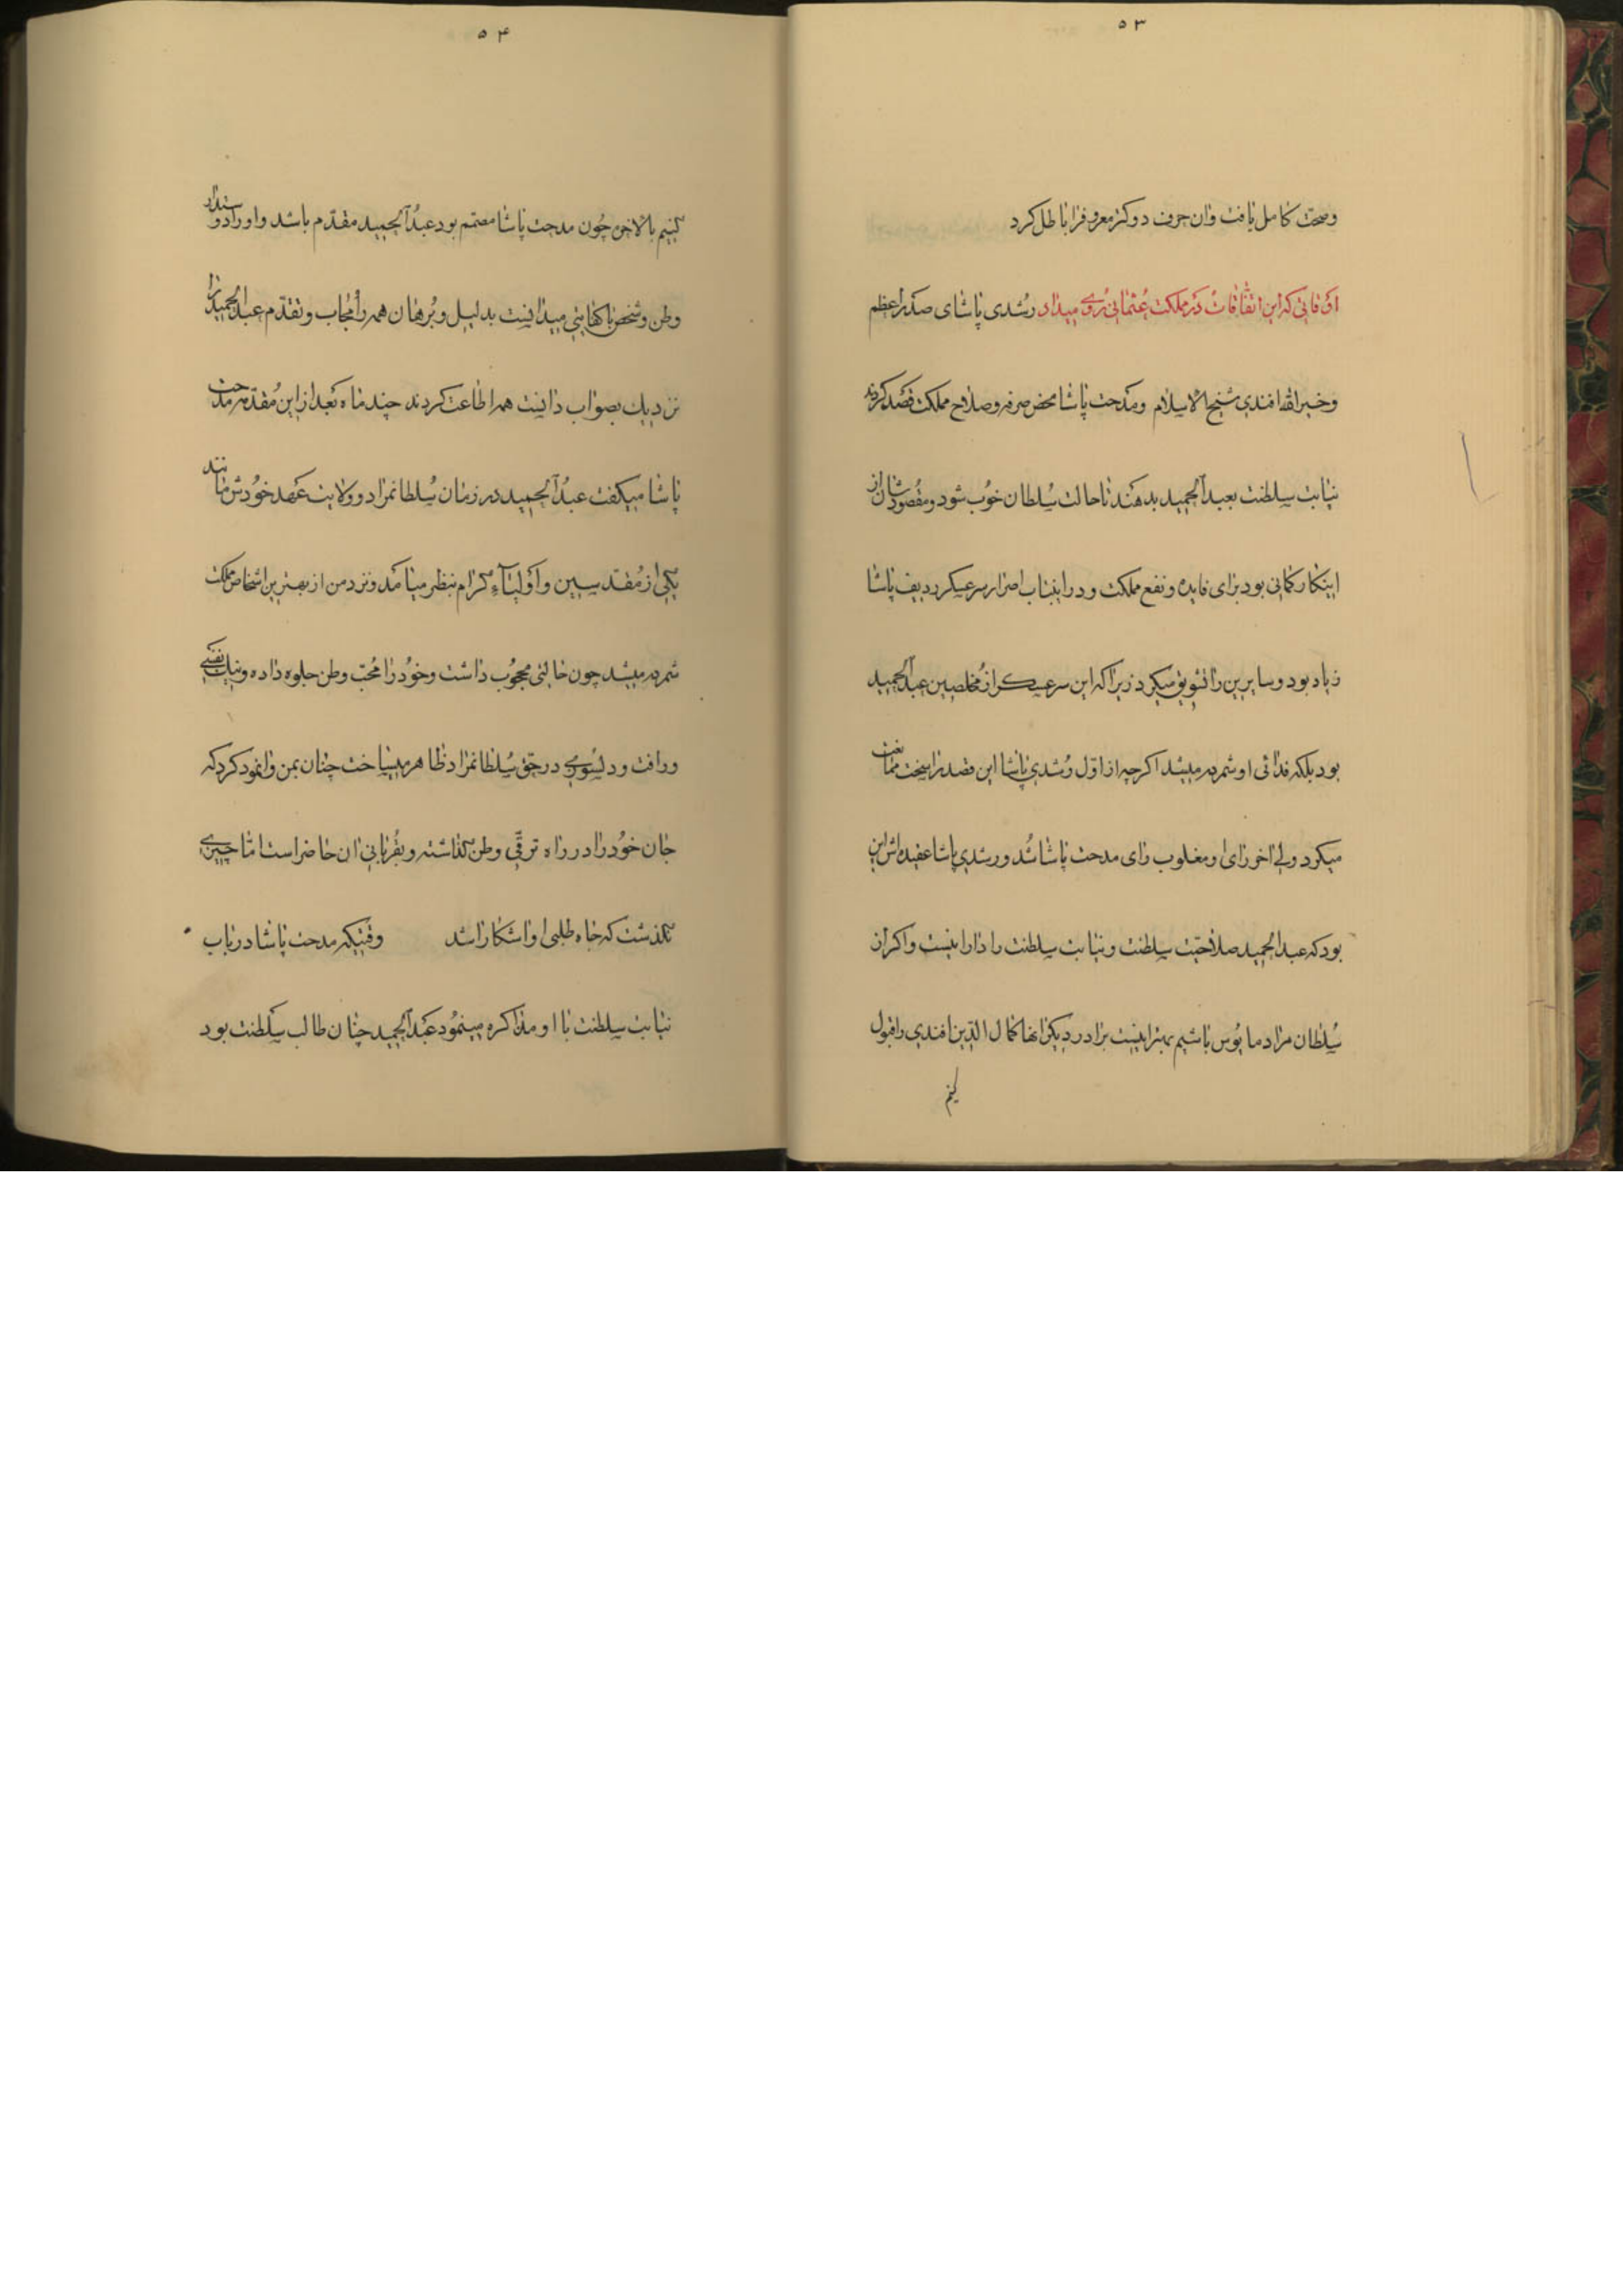 ۵۳
وصحت کامل یافت وان حرف دوکتر معروفرا باطل کرد
اوقاتی که این اتفاقات در مملکت عثمانی روی میداد رشدی پاشای صدر اعظم
وخیرالله افندی شیخ الاسلام ومدحت پاشا محض صرفه وصلاح مملکت قصد کردند
نیابت سلطنت بعبد الحمید بدهند تا حالت سلطان خوب شود ومقصودشان از
اینکار کمانی بود برای فایده ونفع مملکت ودر اینباب اصرار سرعسکر ردیف پاشا
زیاد بود وسایرین را تشویق میکرد زیرا که این سرعسکر از مخلصین عبد الحمید
بود بلکه فدائی او شمرده میشد اکرچه از اول رشدی پاشا این قصد را سخت ممانعت
میکرد ولی اخر رای او مغلوب رای مدحت پاشا شد ورشدی پاشا عقیده اش این
بود که عبد الحمید صلاحیت سلطنت ونیابت سلطنت را دارا نیست واکر از
سلطان مراد مایوس باشیم بهتر اینست برادر دیکر انها کمال الدین افندی را قبول
کنیم
۵۴
کنیم بالاخره چون مدحت پاشا مصمم بود عبد الحمید مقدم باشد واورا دوستدار
وطن وشخص با کفایتی میدانست بدلیل وبرهان همه را مجاب وتقدم عبد الحمید را
نزدیک بصواب دانست همه اطاعت کردند چند ماه بعد از این مقدمه مدحت
پاشا میکفت عبد الحمید در زمان سلطانمراد وولایت عهد خودش مانند
یکی از مقدسین واولیاء کرام بنظر میامد ونزد من از بهترین اشخاص مملکت
شمرده میشد چون حالتی محجوب داشت وخود را محب وطن جلوه داده ونیک نفسی
ورافت ودلسوزی در حق سلطانمراد ظاهر میساخت چنان بمن وانمود کرد که
جان خود را در راه ترقی وطن کذاشته وبقربانی ان حاضر است اما چیزی
نکذشت که جاه طلبی او اشکارا شد وقتیکه مدحت پاشا در باب
نیابت سلطنت با او مذاکره مینمود عبد الحمید چنان طالب سلطنت بود